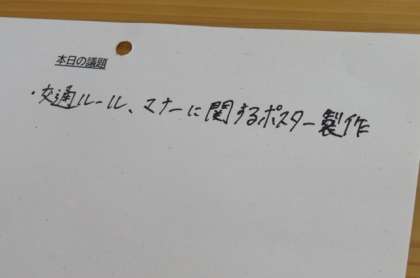 本日の議題
・交通ルール、マナーに関するポスター製作